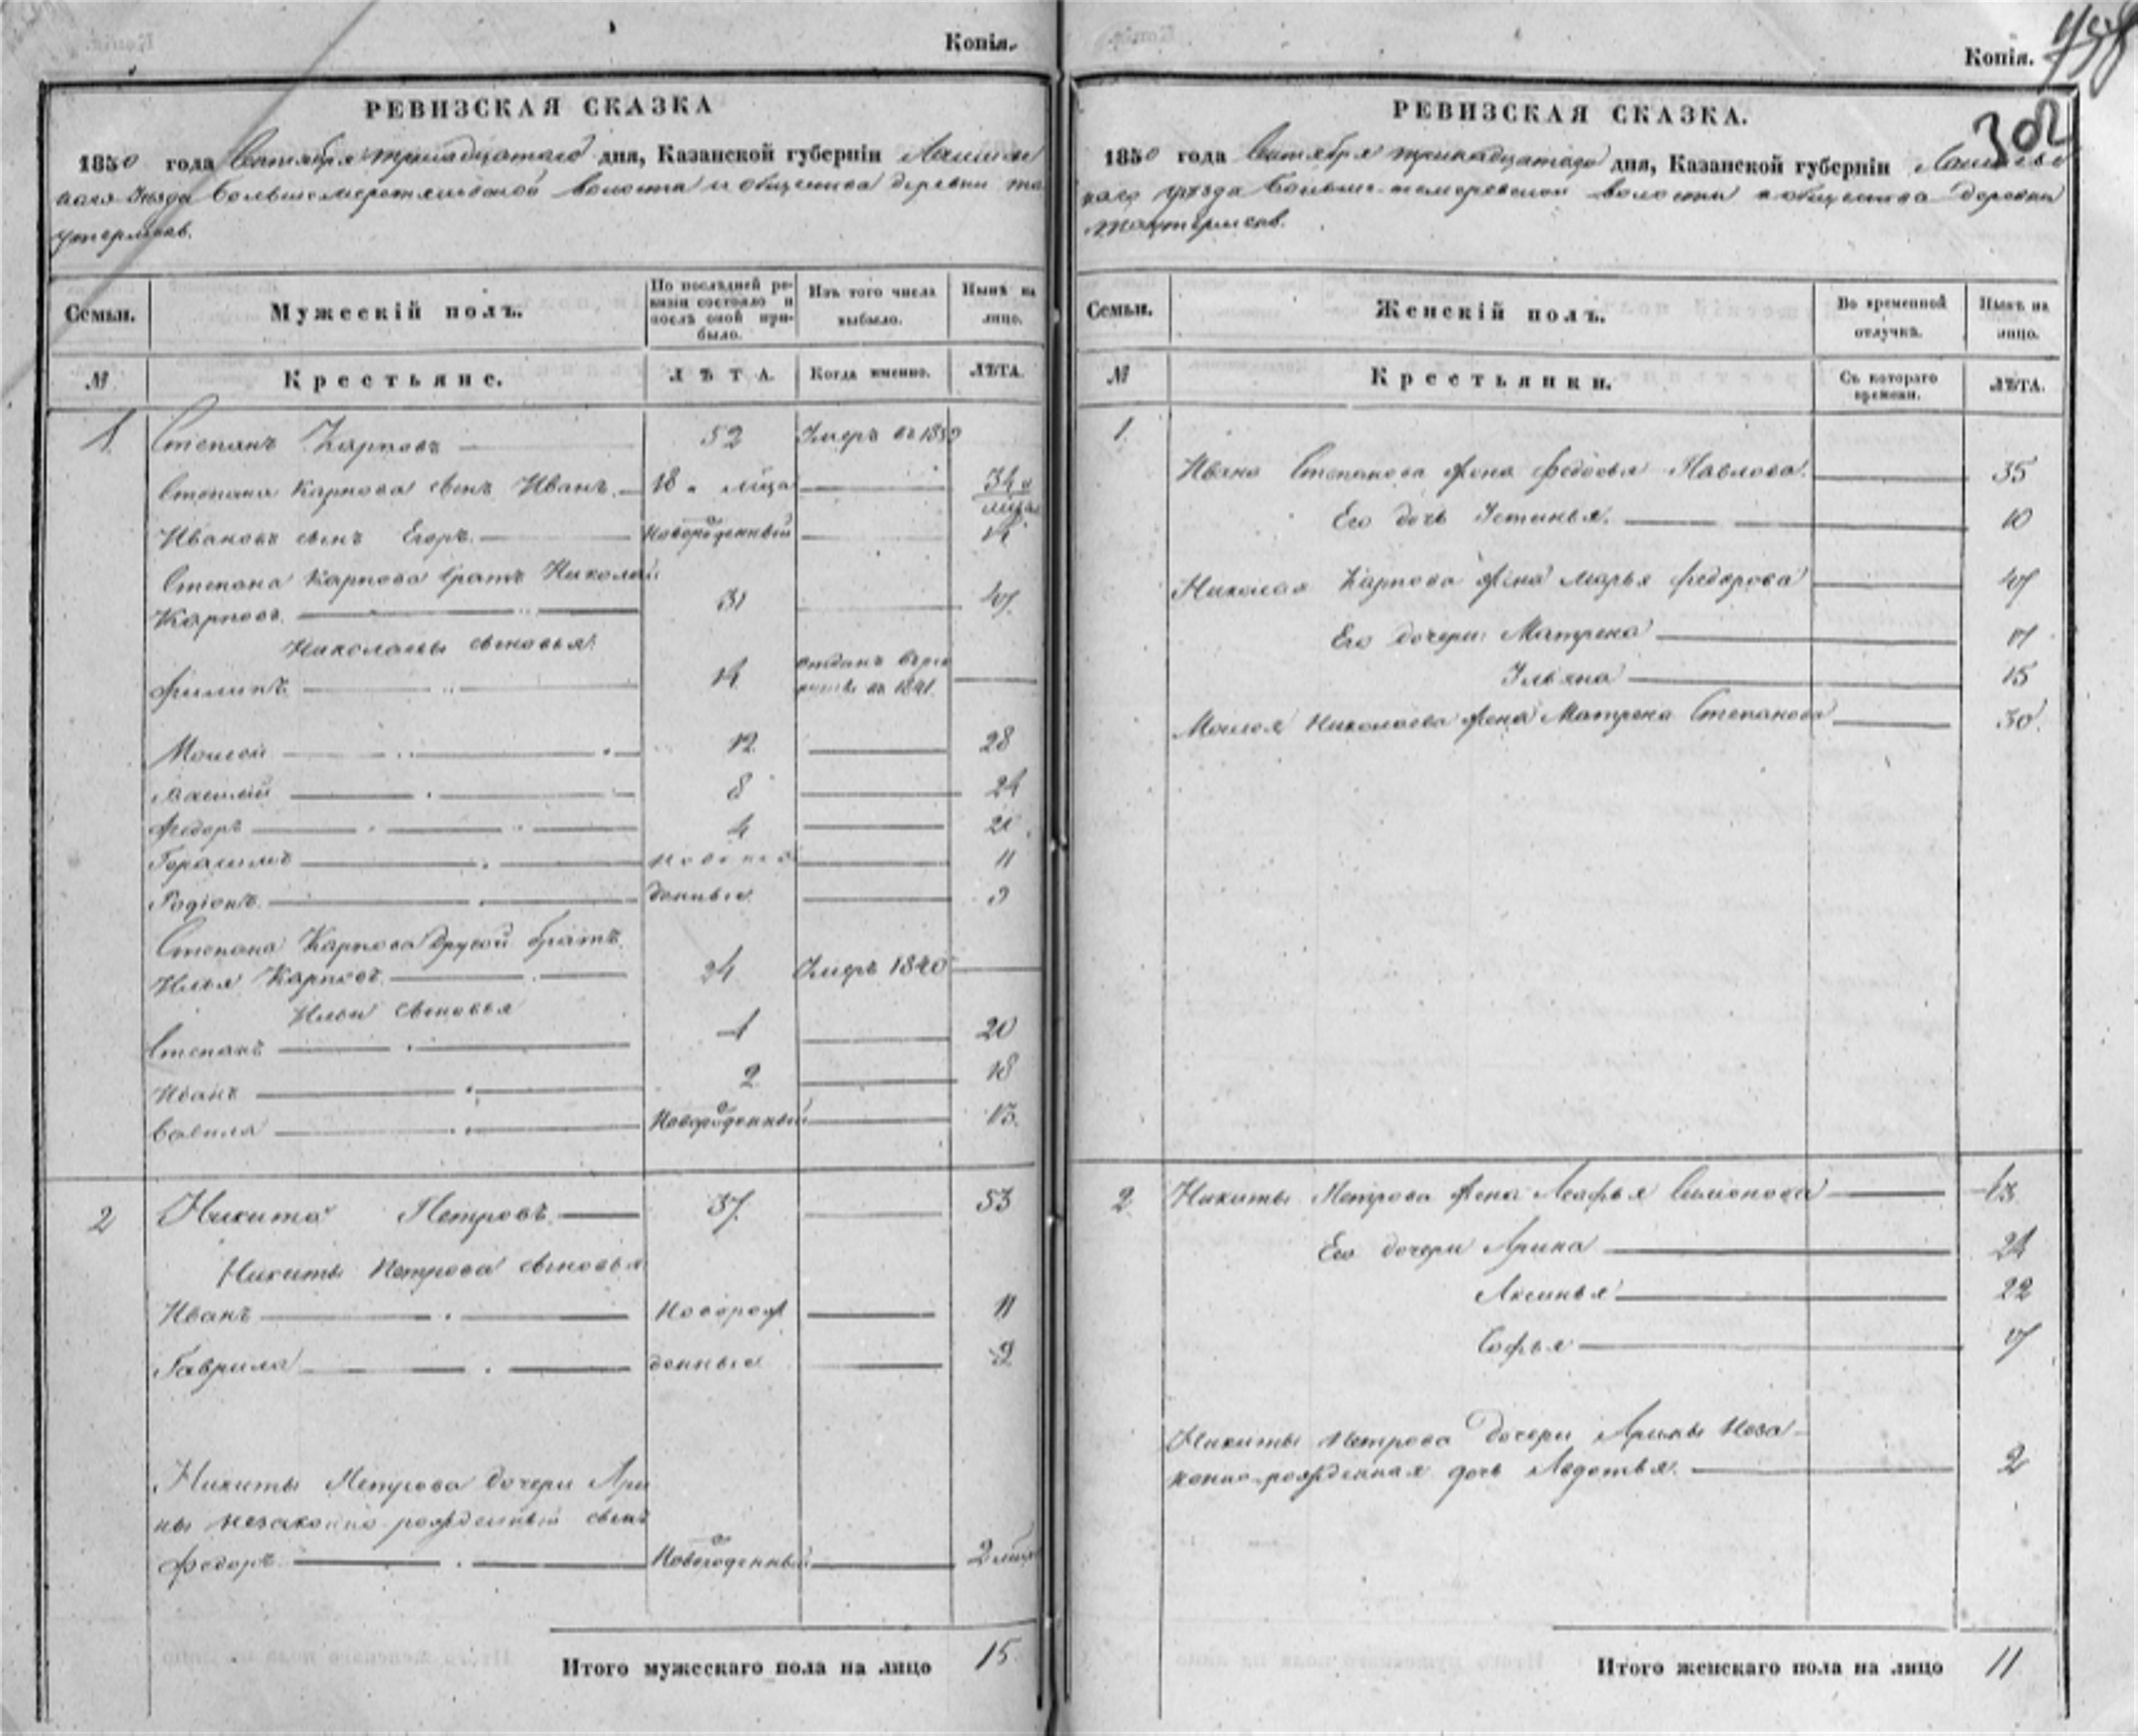 Копія.
РЕВИЗСКАЯ СКАЗКА
1850 года Сентября тринадцатаго дня, Казанской губерніи Лаишев
скаго Уѣзда волости и общества деревни Та
Семьи.
Мужескій полъ.
По послѣдней ре-
визіи состояло и
послѣ оной при-
было.
Изъ того числа
выбыло.
Нынѣ на
лицо.
№
Крестьяне.
ЛѢТА.
Когда именно.
ЛѢТА.
1 Степанъ Карповъ 52 Умеръ въ 1850
Степана Карпова сынъ Иванъ 18 34
Ивановъ сынъ Егоръ Новорожденный 14
Степана Карпова братъ Николай
Карповъ 31 47
Николаевы сыновья
Филипъ 14 отданъ въ рек
руты въ 1841
Моисей 12 28
Василій 8 24
Федоръ 4 20
Герасимъ новорож 11
Родіонъ денные 9
Степана Карпова другой братъ
Илья Карповъ 24 Умеръ 1840
Ильи сыновья
Степанъ 4 20
Иванъ 2 18
Вавила Новорожденный 13
2 Никита Петровъ 37 53
Никиты Петрова сыновья
Иванъ Новорож 11
Гаврила денные 9
Никиты Петрова дочери Ари
ны незаконно рожденный сынъ
Федоръ Новорожденный 2
Итого мужескаго пола на лицо 15
Копія.
302
РЕВИЗСКАЯ СКАЗКА.
1850 года Сентября тринадцатаго дня, Казанской губерніи Лаишевс
каго уѣзда волости и общества деревни
Семьи.
Женскій полъ.
Во временной
отлучкѣ.
Нынѣ на
лицо.
№
Крестьянки.
Съ котораго
времени.
ЛѢТА.
1.
Ивана Степанова жена Федосья Павлова. 35
Его дочь Устинья. 10
Николая Карпова жена Марья Федорова 47
Его дочери: Матрена 17
Ульяна 15
Моисея Николаева жена Матрена Степанова 30
2 Никиты Петрова жена Агафья Симонова
Его дочери Арина 24
Аксинья 22
Софья 17
Никиты Петрова дочери Арины неза-
конно-рожденная дочь Авдотья. 2
Итого женскаго пола на лицо 11